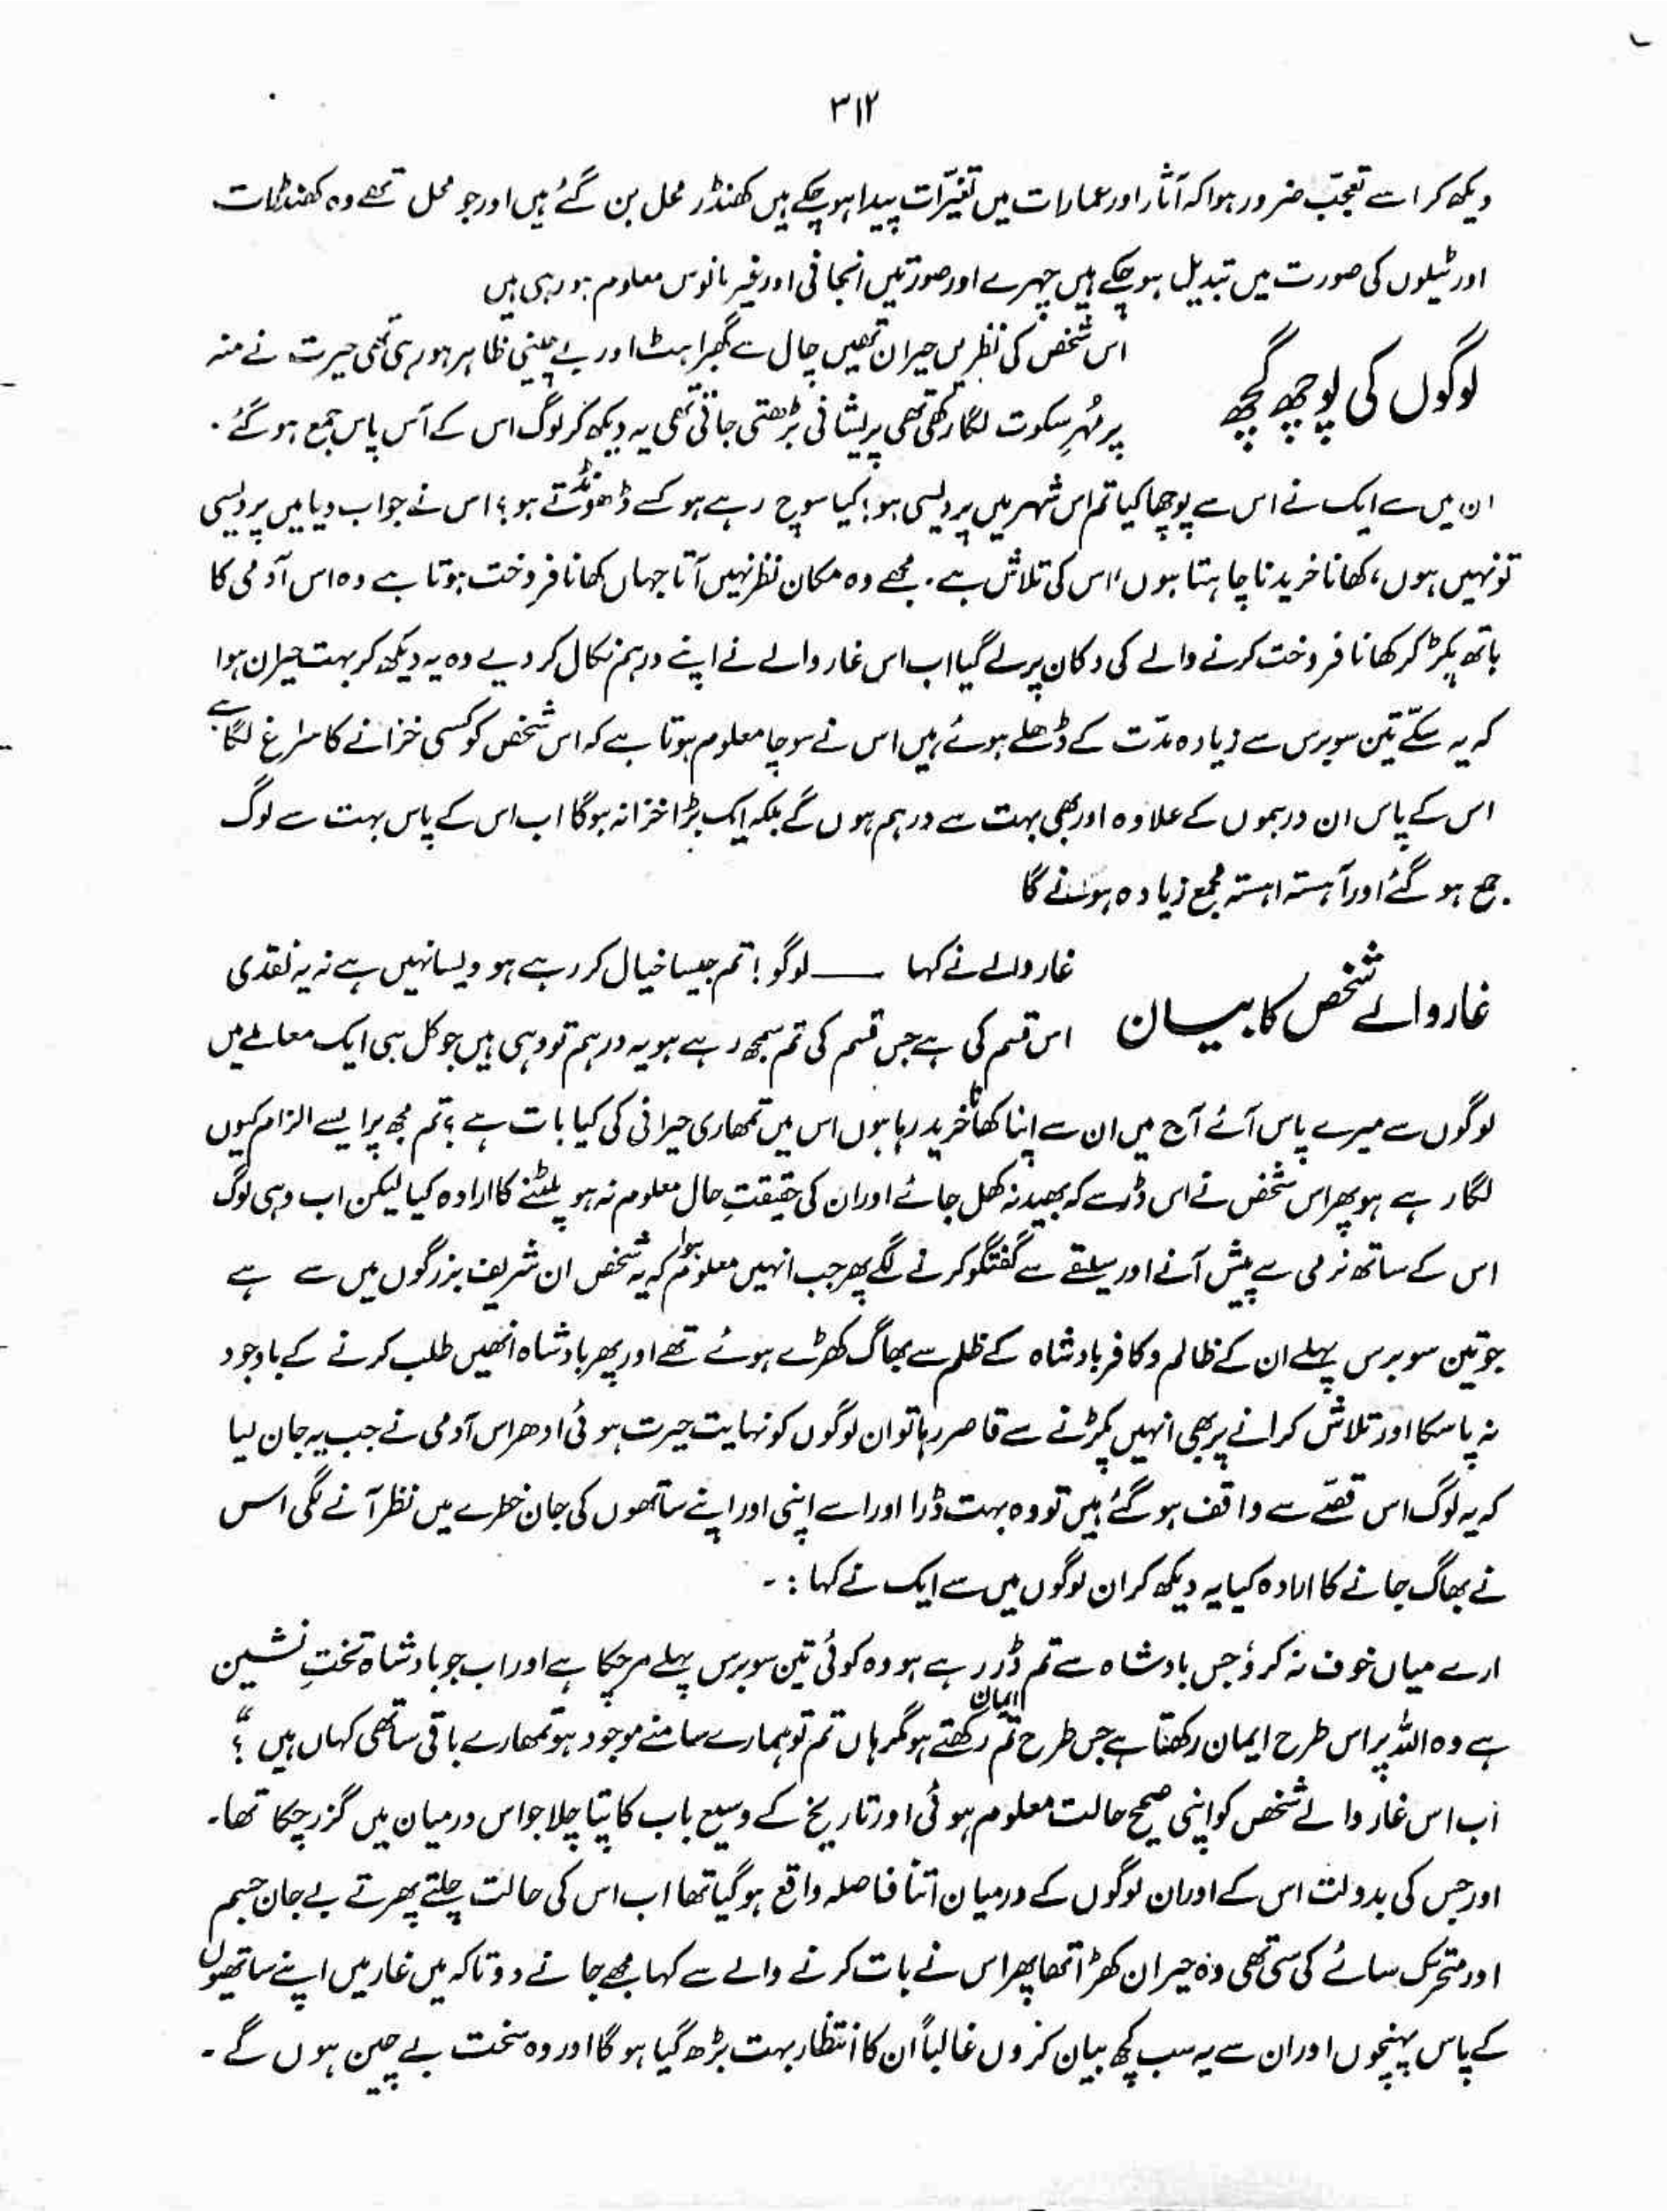 ۳۱۲
دیکھ کر اسے تعجّب ضرور ہوا کہ آثار اور عمارات میں تغیّرات پیدا ہو چکے ہیں کھنڈر محل بن گئے ہیں اور جو محل تھے وہ کھنڈرات
اور ٹیلوں کی صورت میں تبدیل ہو چکے ہیں چہرے اور صورتیں انجانی اور غیر مانوس معلوم ہو رہی ہیں
لوگوں کی پوچھ گچھ
اس شخص کی نظریں حیران تھیں چال سے گھبراہٹ اور بے چینی ظاہر ہو رہی تھی حیرت نے منہ
پر مُہرِ سکوت لگا رکھی تھی پریشانی بڑھتی جاتی تھی یہ دیکھ کر لوگ اس کے آس پاس جمع ہو گئے۔
ان میں سے ایک نے اس سے پوچھا کیا تم اس شہر میں پردیسی ہو؛ کیا سوچ رہے ہو کسے ڈھونڈتے ہو؟ اس نے جواب دیا میں پردیسی
تو نہیں ہوں، کھانا خریدنا چاہتا ہوں، اس کی تلاش ہے۔ مجھے وہ مکان نظر نہیں آتا جہاں کھانا فروخت ہوتا ہے وہ اس آدمی کا
ہاتھ پکڑ کر کھانا فروخت کرنے والے کی دکان پر لے گیا اب اس غار والے نے اپنے درہم نکال کر دیے وہ یہ دیکھ کر بہت حیران ہوا
کہ یہ سکّے تین سو برس سے زیادہ مدّت کے ڈھلے ہوئے ہیں اس نے سوچا معلوم ہوتا ہے کہ اس شخص کو کسی خزانے کا سراغ لگا ہے
اس کے پاس ان درہموں کے علاوہ اور بھی بہت سے درہم ہوں گے بلکہ ایک بڑا خزانہ ہوگا اب اس کے پاس بہت سے لوگ
جمع ہو گئے اور آہستہ اہستہ مجمع زیادہ ہونے گا
غار والے شخص کا بیان
غار والے نے کہا —— لوگو! تم جیسا خیال کر رہے ہو ویسا نہیں ہے نہ یہ نقدی
اس قسم کی ہے جس قسم کی تم سمجھ رہے ہو یہ درہم تو وہی ہیں جو کل ہی ایک معاملے میں
لوگوں سے میرے پاس آئے آج میں ان سے اپنا کھانا خرید رہا ہوں اس میں تمھاری حیرانی کی کیا بات ہے؟ تم مجھ پر ایسے الزام کیوں
لگا رہے ہو پھر اس شخص نے اس ڈر سے کہ بھید نہ کھل جائے اور ان کی حقیقتِ حال معلوم نہ ہو پلٹنے کا ارادہ کیا لیکن اب وہی لوگ
اس کے ساتھ نرمی سے پیش آنے اور سلیقے سے گفتگو کرنے لگے پھر جب انہیں معلوم ہوا کہ یہ شخص ان شریف بزرگوں میں سے ہے
جو تین سو برس پہلے ان کے ظالم و کافر بادشاہ کے ظلم سے بھاگ کھڑے ہوئے تھے اور پھر بادشاہ انھیں طلب کرنے کے باوجود
نہ پا سکا اور تلاش کرانے پر بھی انہیں پکڑنے سے قاصر رہا تو ان لوگوں کو نہایت حیرت ہوئی ادھر اس آدمی نے جب یہ جان لیا
کہ یہ لوگ اس قصّے سے واقف ہو گئے ہیں تو وہ بہت ڈرا اور اسے اپنی اور اپنے ساتھوں کی جان خطرے میں نظر آنے لگی اس
نے بھاگ جانے کا ارادہ کیا یہ دیکھ کر ان لوگوں میں سے ایک نے کہا :۔
ارے میاں خوف نہ کرو، جس بادشاہ سے تم ڈر رہے ہو وہ کوئی تین سو برس پہلے مر چکا ہے اور اب جو بادشاہ تختِ نشین
ہے وہ اللہ پر اس طرح ایمان رکھتا ہے جس طرح تم ایمان رکھتے ہو مگر ہاں تم تو ہمارے سامنے موجود ہو تمھارے باقی ساتھی کہاں ہیں؟"
اب اس غار والے شخص کو اپنی صحیح حالت معلوم ہوئی اور تاریخ کے وسیع باب کا پتا چلا جو اس درمیان میں گزر چکا تھا۔
اور جس کی بدولت اس کے اور ان لوگوں کے درمیان اتنا فاصلہ واقع ہو گیا تھا اب اس کی حالت چلتے پھرتے بے جان جسم
اور متحرک سائے کی سی تھی وہ حیران کھڑا تھا پھر اس نے بات کرنے والے سے کہا مجھے جانے دو تاکہ میں غار میں اپنے ساتھیوں
کے پاس پہنچوں اور ان سے یہ سب کچھ بیان کروں غالباً ان کا انتظار بہت بڑھ گیا ہو گا اور وہ سخت بے چین ہوں گے۔